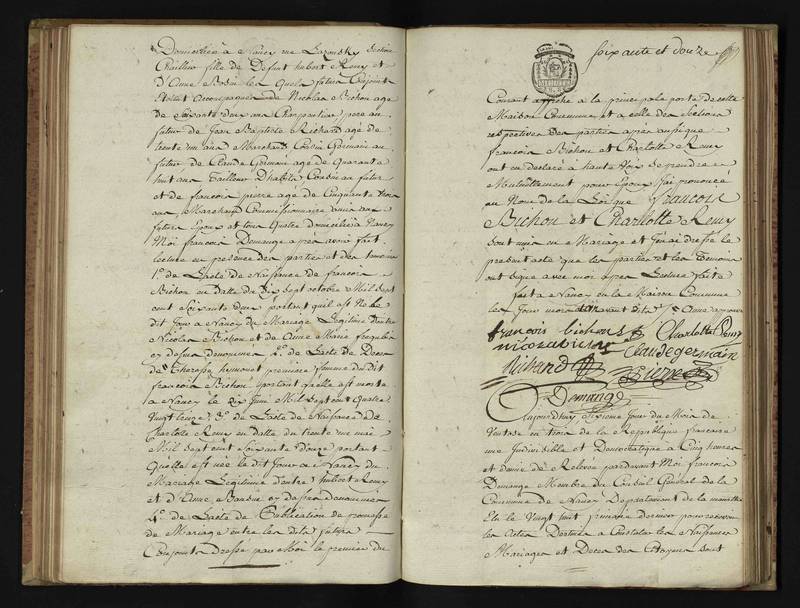 Domiciliée à Nancy rue Lazowsky Section
fille de Défunt hubert Remy et
d'Anne Bodin les quels futurs Conjoints
Etoient accompagnés de Nicolas Bichon age
de Soixante deux ans Charpantier, pere au
futur de Jean Baptiste Richard agé de
trente un ans Marchand Cousin Germain au
futur de Claude Germain agé de Quarante
huit ans Tailleur D'habits Cousin au futur
et de françois pierre agé de Cinquante trois
ans, Marchand Commissionnaire amis aux
futurs Epoux et tous Quatre domiciliés à Nancy
Moi françois Demange après avoir fait
lecture en presence des parties et des temoins
1.° de L'acte de Naissance de francois
Bichon en datte du Dix Sept octobre Mil Sept
cent Soixante deux portant qu'il est Né le
dit Jour a Nancy du Mariage Légitime d'entre
Nicolas Bichon et de Anne Marie
2.° de L'acte de Deces
de Therese premiere femme du dit
francois Bichon portant quelle est morte
a Nancy le Dix Juin Mil Sept cent Quatre
Vingt treize 3.° de L'acte de Naissance de
Charlotte Remy en datte du trente un mai
Mil Sept cent Soixante douze portant
Qu'elle est née le dit Jour a Nancy du
Mariage Legitime d'entre hubert Remy
et d'Anne Bodin
4.° de L'acte de Publication de promesse
de Mariage entre les dits futurs
Conjoints Dressé par Moi le premier du
soixante et douze
Courant affiché a la principale porte de cette
Maison Commune et a celle des Sections
respectives des parties après aussi que
francois Bichon et Charlotte Remy
ont eu declaré a haute Voix se prendre
Mutuellement pour Epoux J'ai prononcé
au Nom de la Loi que francois
Bichon et Charlotte Remy
sont unis en Mariage et J'ai dressé le
présent acte que les parties et les Temoins
ont signé avec moi après Lecture faite
fait a Nancy en la Maison Commune
les Jour mois et an avant dits
francois bichon Charlotte Remy
nicolas bichon Claude germain
Richard Pierre
Demange
Aujourd'huy Sixieme Jour du Mois de
Ventose an trois de la République francaise
une Indivisible et Democratique à Cinq heures
et demie de Relevée pardevant Moi francois
Demange Membre du Conseil Général de la
Commune de Nancy Departement de la meurthe
Elu le Vingt huit frimaire dernier pour recevoir
les Actes Destinés a Constater les Naissances
Mariages et Deces des Citoyens sont